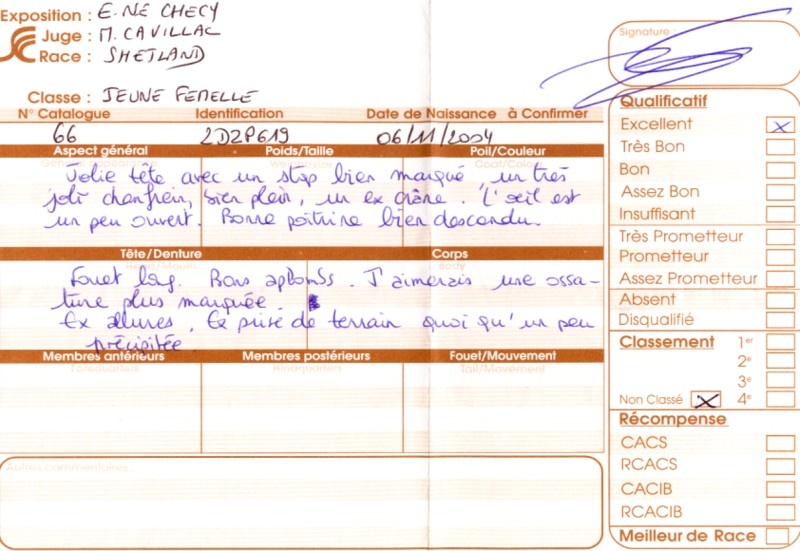 Exposition : E. NE CHECY
Juge : M. CAVILLAC
Race : SHETLAND
Classe : JEUNE FEMELLE
Signature
N° Catalogue Identification Date de Naissance à Confirmer
66 2DZP619 06/11/2004
Aspect général Poids/Taille Poil/Couleur
Jolie tête avec un stop bien marqué, un très
joli chanfrein, bien plein, un ex crâne. L'oeil est
un peu ouvert. Bonne poitrine bien descendu.
Tête/Denture Corps
Body
Fouet long. Bons aplombs. J'aimerais une ossa-
ture plus marquée
Ex allures. de terrain quoi qu'un peu
précipitée
Membres antérieurs Membres postérieurs Fouet/Mouvement
Forequarters Hindquarters Tail/Movement
Autres commentaires...
Qualificatif
Excellent X
Très Bon
Bon
Assez Bon
Insuffisant
Très Prometteur
Prometteur
Assez Prometteur
Absent
Disqualifié
Classement 1er
2e
3e
Non Classé X 4e
Récompense
CACS
RCACS
CACIB
RCACIB
Meilleur de Race